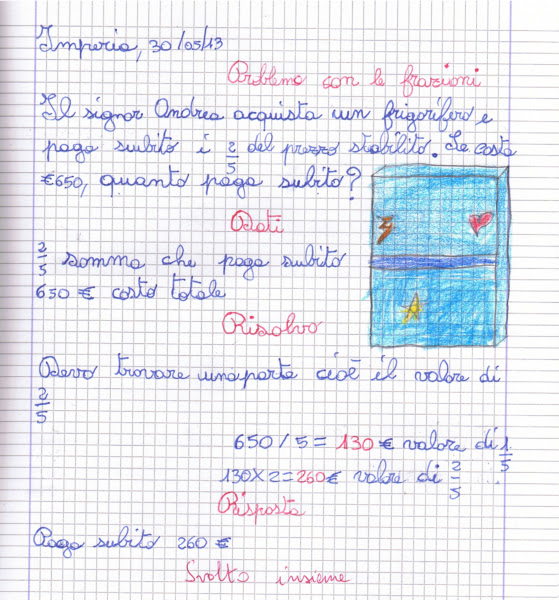 Imperia, 30/05/13
Problema con le frazioni
Il signor Andrea acquista un frigorifero e
paga subito i 2/5 del prezzo stabilito. Se costa
€650, quanto paga subito?
Dati
2/5 somma che paga subito
650 € costo totale
Risolvo
Devo trovare una parte cioè il valore di
2/5
650 / 5 = 130 € valore di 1/5
130 x 2 = 260 € valore di 2/5
Risposta
Paga subito 260 €
Svolto insieme